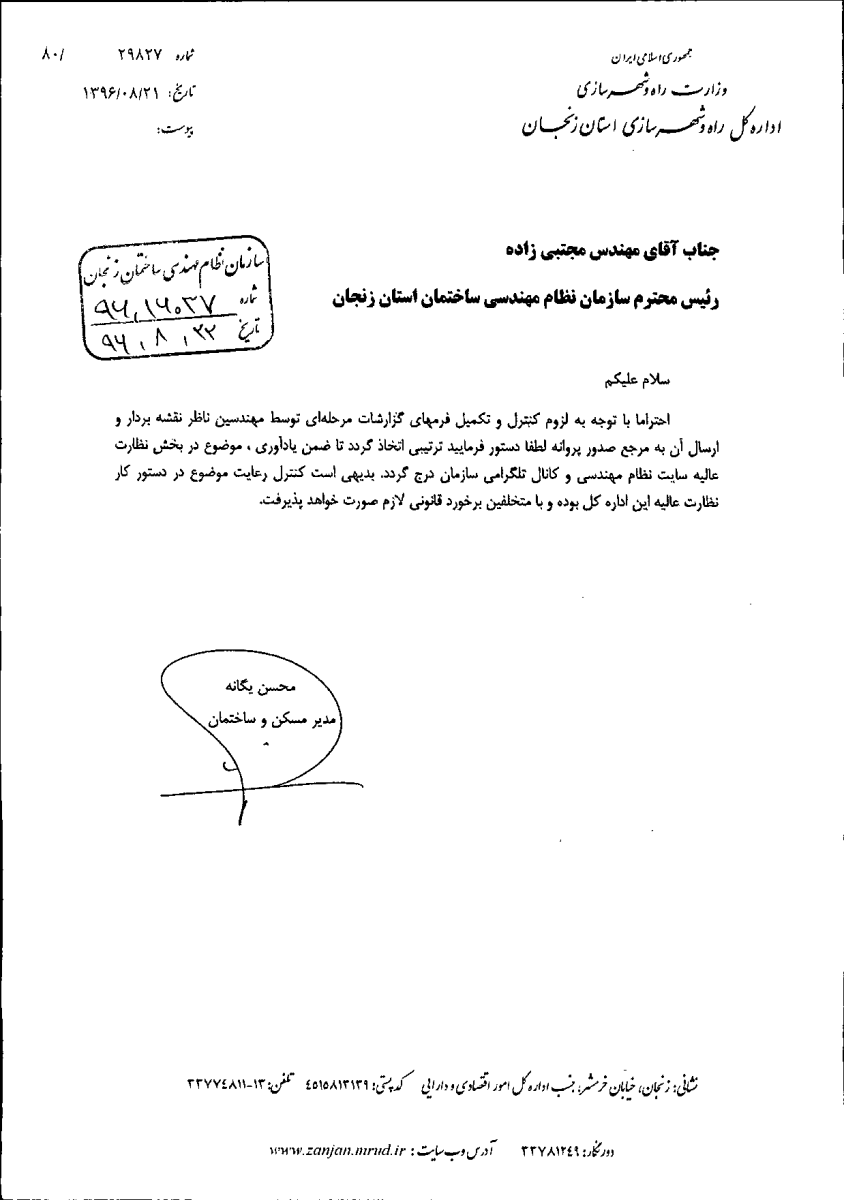 جمهوری اسلامی ایران
وزارت راه و شهرسازی
اداره کل راه و شهرسازی استان زنجان
شماره ۲۹۸۲۷ /۸۰
تاریخ: ۱۳۹۶/۰۸/۲۱
پیوست:
جناب آقای مهندس مجتبی زاده
رئیس محترم سازمان نظام مهندسی ساختمان استان زنجان
سازمان نظام مهندسی ساختمان زنجان
شماره ۹۶,۱۶۰۳۷
تاریخ ۹۶,۸,۲۲
سلام علیکم
احتراما با توجه به لزوم کنترل و تکمیل فرمهای گزارشات مرحله‌ای توسط مهندسین ناظر نقشه بردار و
ارسال آن به مرجع صدور پروانه لطفا دستور فرمایید ترتیبی اتخاذ گردد تا ضمن یادآوری ، موضوع در بخش نظارت
عالیه سایت نظام مهندسی و کانال تلگرامی سازمان درج گردد. بدیهی است کنترل رعایت موضوع در دستور کار
نظارت عالیه این اداره کل بوده و با متخلفین برخورد قانونی لازم صورت خواهد پذیرفت.
محسن یگانه
مدیر مسکن و ساختمان
نشانی: زنجان، خیابان خرمشهر، جنب اداره کل امور اقتصادی و دارایی کد پستی: ۴۵۱۵۸۱۳۱۳۹ تلفن: ۱۳-۳۳۷۷۴۸۱۱
دورنگار: ۳۳۷۸۱۲۴۹ آدرس وب سایت : www.zanjan.mrud.ir